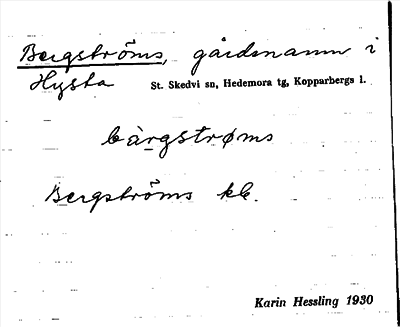 Bergströms, gårdsnamn i
Hysta St. Skedvi sn, Hedemora tg, Kopparbergs l.
bàrgstrøms
Bergströms kk.
Karin Hessling 1930